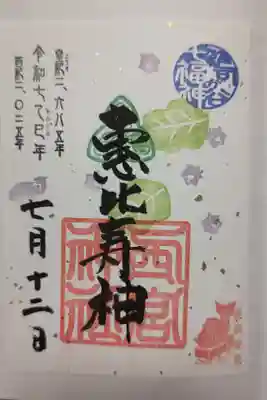 恵比寿神
西宮神社
皇紀二六八五年
令和七乙巳年
西暦二〇二五年
七月十二日